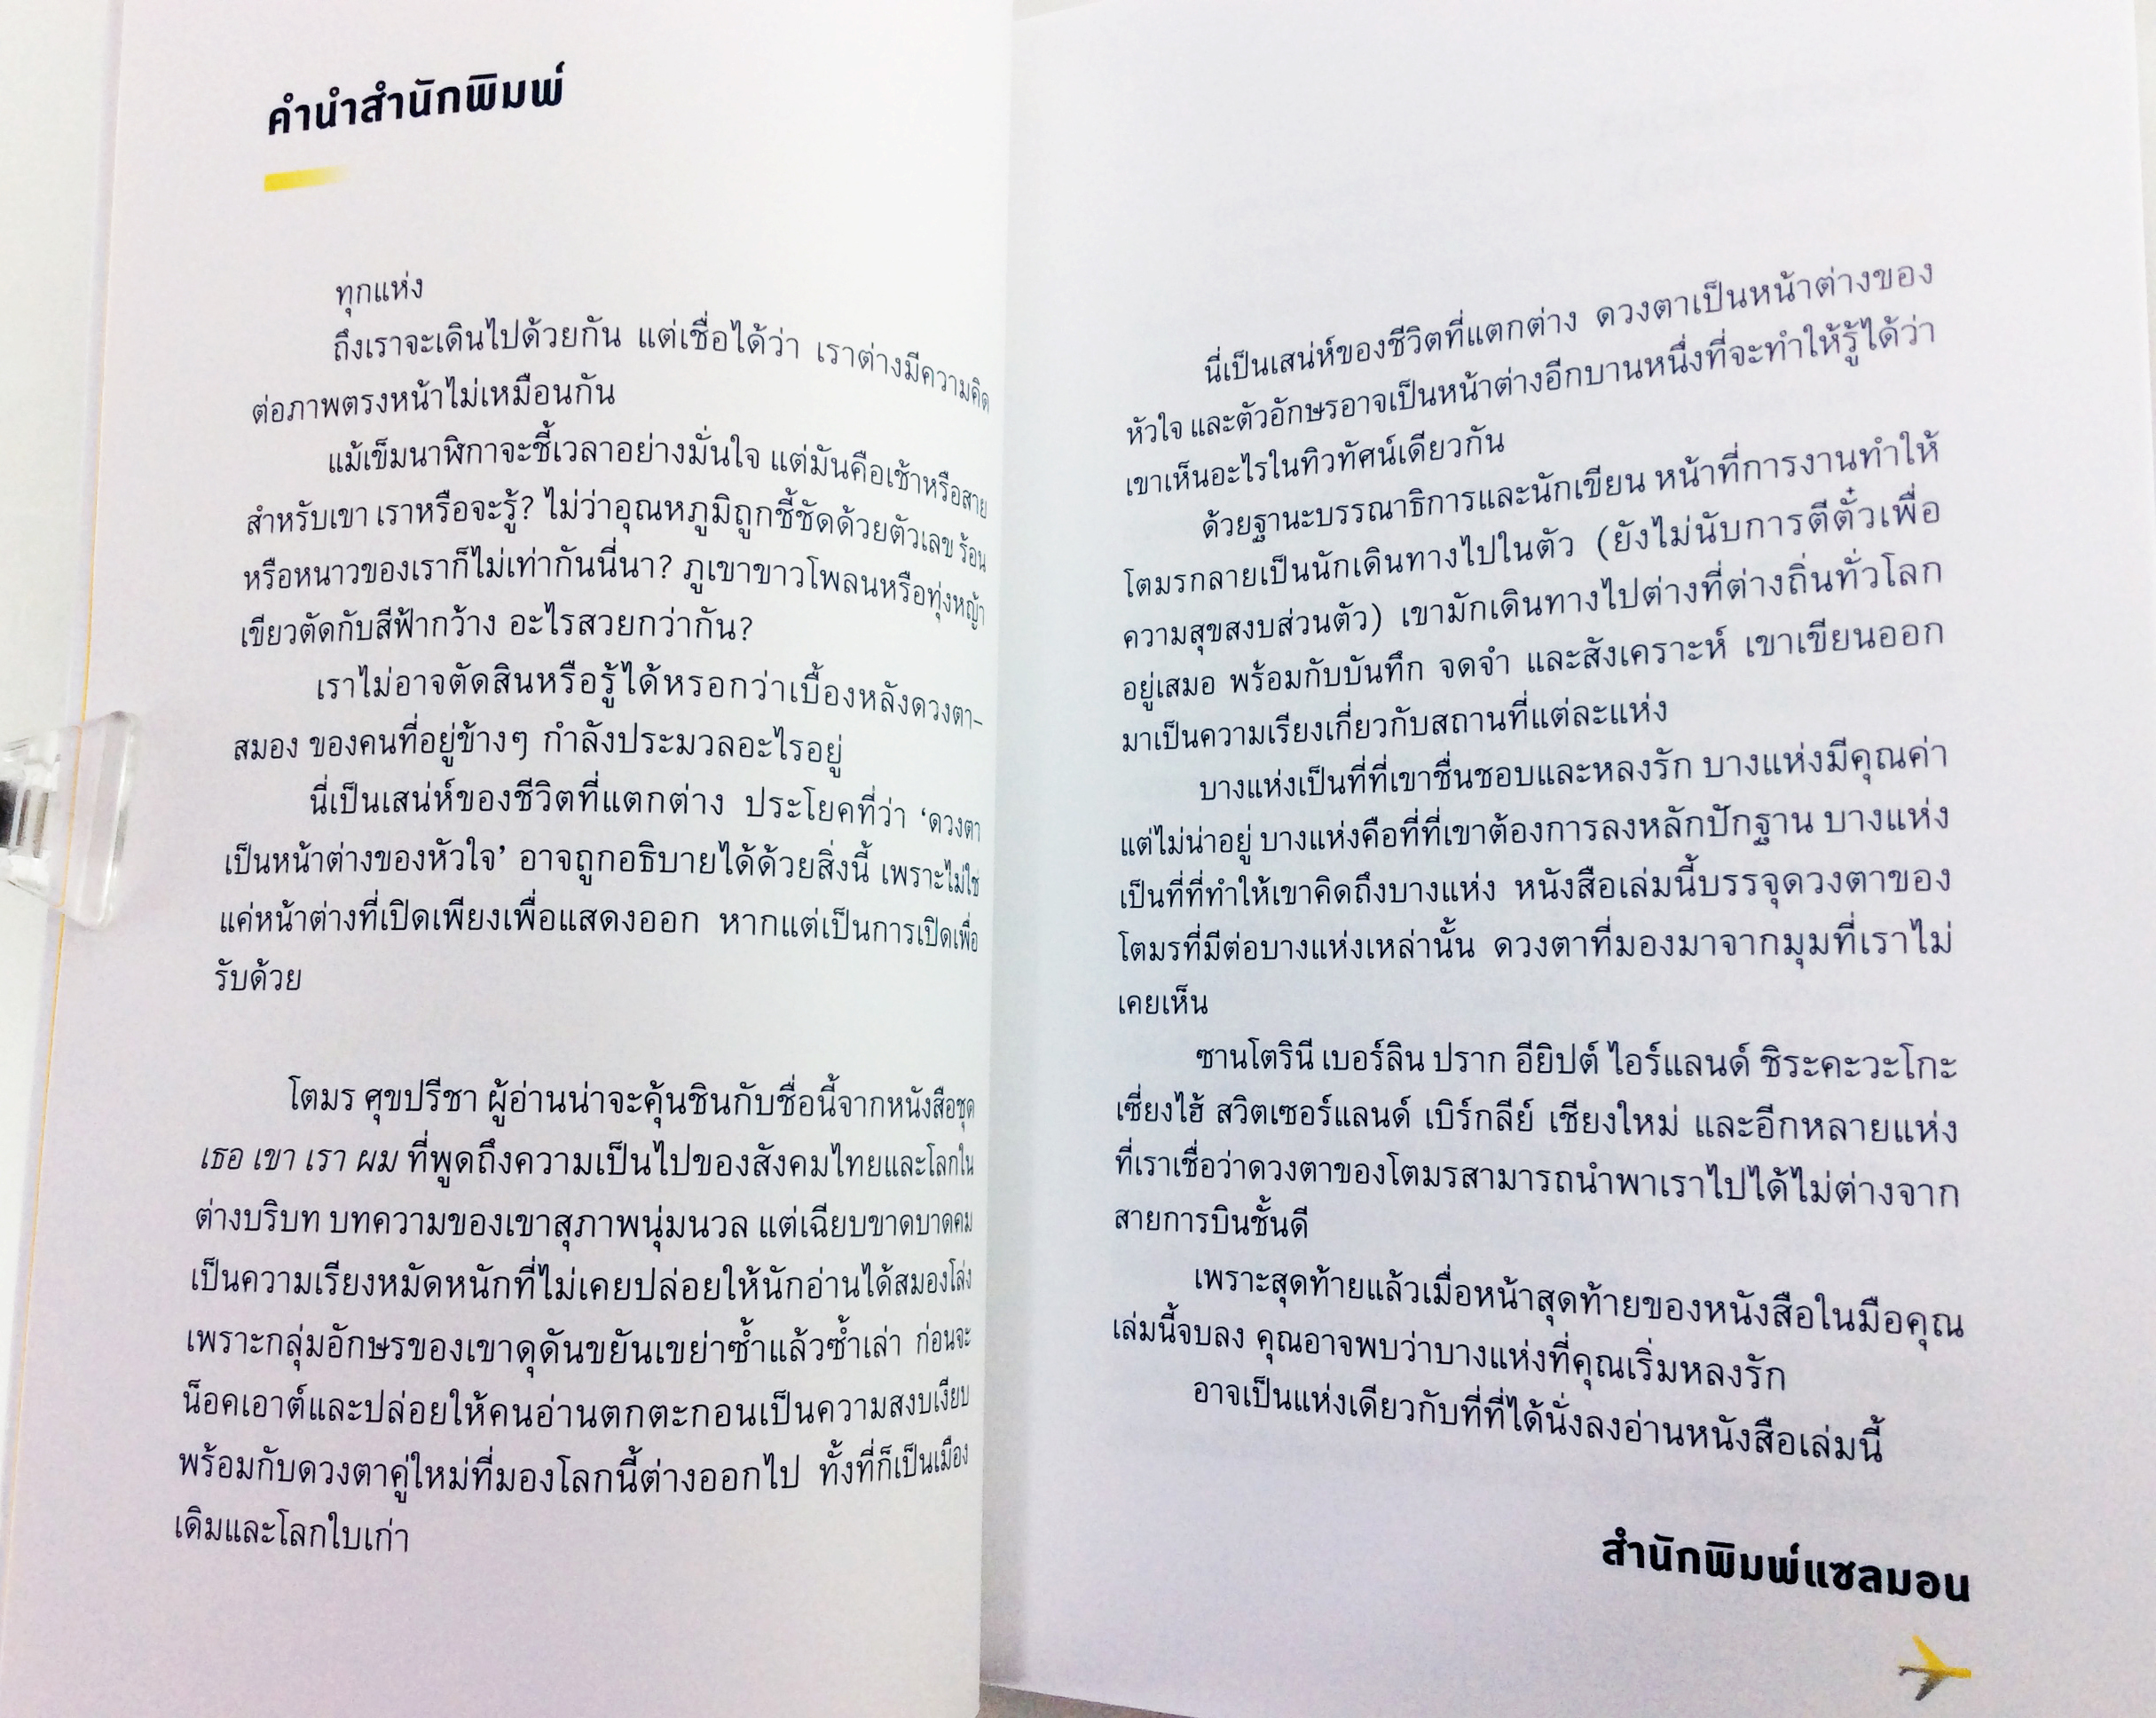 คำนำสำนักพิมพ์
ทุกแห่ง
ถึงเราจะเดินไปด้วยกัน แต่เชื่อได้ว่า เราต่างมีความคิด
ต่อภาพตรงหน้าไม่เหมือนกัน
แม้เข็มนาฬิกาจะชี้เวลาอย่างมั่นใจ แต่มันคือเช้าหรือสาย
สำหรับเขา เราหรือจะรู้? ไม่ว่าอุณหภูมิถูกชี้ชัดด้วยตัวเลข ร้อน
หรือหนาวของเราก็ไม่เท่ากันนี่นา? ภูเขาขาวโพลนหรือทุ่งหญ้า
เขียวตัดกับสีฟ้ากว้าง อะไรสวยกว่ากัน?
เราไม่อาจตัดสินหรือรู้ได้หรอกว่าเบื้องหลังดวงตา-
สมอง ของคนที่อยู่ข้างๆ กำลังประมวลอะไรอยู่
นี่เป็นเสน่ห์ของชีวิตที่แตกต่าง ประโยคที่ว่า ‘ดวงตา
เป็นหน้าต่างของหัวใจ’ อาจถูกอธิบายได้ด้วยสิ่งนี้ เพราะไม่ใช่
แค่หน้าต่างที่เปิดเพียงเพื่อแสดงออก หากแต่เป็นการเปิดเพื่อ
รับด้วย
โตมร ศุขปรีชา ผู้อ่านน่าจะคุ้นชินกับชื่อนี้จากหนังสือชุด
เธอ เขา เรา ผม ที่พูดถึงความเป็นไปของสังคมไทยและโลกใน
ต่างบริบท บทความของเขาสุภาพนุ่มนวล แต่เฉียบขาดบาดคม
เป็นความเรียงหมัดหนักที่ไม่เคยปล่อยให้นักอ่านได้สมองโล่ง
เพราะกลุ่มอักษรของเขาดุดันขยันเขย่าซ้ำแล้วซ้ำเล่า ก่อนจะ
น็อคเอาต์และปล่อยให้คนอ่านตกตะกอนเป็นความสงบเงียบ
พร้อมกับดวงตาคู่ใหม่ที่มองโลกนี้ต่างออกไป ทั้งที่ก็เป็นเมือง
เดิมและโลกใบเก่า
นี่เป็นเสน่ห์ของชีวิตที่แตกต่าง ดวงตาเป็นหน้าต่างของ
หัวใจ และตัวอักษรอาจเป็นหน้าต่างอีกบานหนึ่งที่จะทำให้รู้ได้ว่า
เขาเห็นอะไรในทิวทัศน์เดียวกัน
ด้วยฐานะบรรณาธิการและนักเขียน หน้าที่การงานทำให้
โตมรกลายเป็นนักเดินทางไปในตัว (ยังไม่นับการตีตั๋วเพื่อ
ความสุขสงบส่วนตัว) เขามักเดินทางไปต่างที่ต่างถิ่นทั่วโลก
อยู่เสมอ พร้อมกับบันทึก จดจำ และสังเคราะห์ เขาเขียนออก
มาเป็นความเรียงเกี่ยวกับสถานที่แต่ละแห่ง
บางแห่งเป็นที่ที่เขาชื่นชอบและหลงรัก บางแห่งมีคุณค่า
แต่ไม่น่าอยู่ บางแห่งคือที่ที่เขาต้องการลงหลักปักฐาน บางแห่ง
เป็นที่ที่ทำให้เขาคิดถึงบางแห่ง หนังสือเล่มนี้บรรจุดวงตาของ
โตมรที่มีต่อบางแห่งเหล่านั้น ดวงตาที่มองมาจากมุมที่เราไม่
เคยเห็น
ซานโตรินี เบอร์ลิน ปราก อียิปต์ ไอร์แลนด์ ชิระคะวะโกะ
เซี่ยงไฮ้ สวิตเซอร์แลนด์ เบิร์กลีย์ เชียงใหม่ และอีกหลายแห่ง
ที่เราเชื่อว่าดวงตาของโตมรสามารถนำพาเราไปได้ไม่ต่างจาก
สายการบินชั้นดี
เพราะสุดท้ายแล้วเมื่อหน้าสุดท้ายของหนังสือในมือคุณ
เล่มนี้จบลง คุณอาจพบว่าบางแห่งที่คุณเริ่มหลงรัก
อาจเป็นแห่งเดียวกับที่ที่ได้นั่งลงอ่านหนังสือเล่มนี้
สำนักพิมพ์แซลมอน